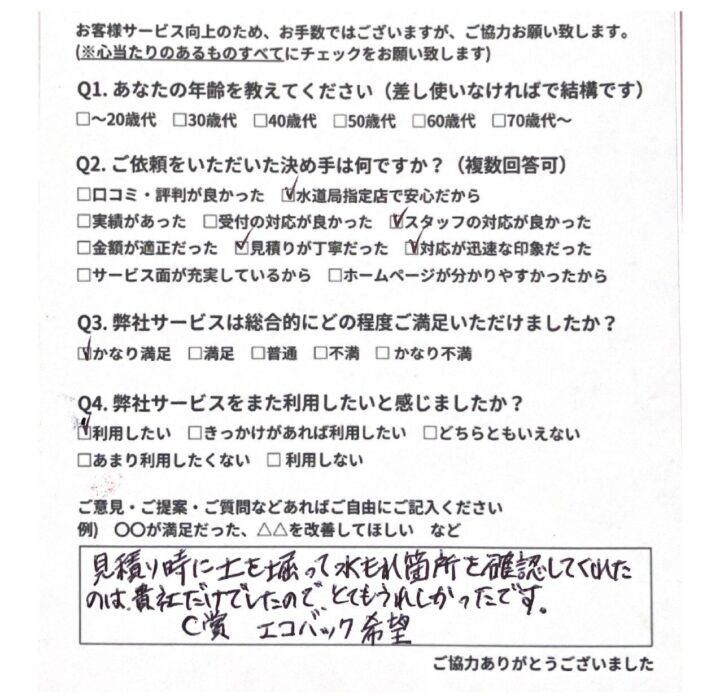 お客様サービス向上のため、お手数ではございますが、ご協力お願い致します。
(※心当たりのあるものすべてにチェックをお願い致します)
Q1. あなたの年齢を教えてください（差し使いなければで結構です）
□〜20歳代 □30歳代 □40歳代 □50歳代 □60歳代 □70歳代〜
Q2. ご依頼をいただいた決め手は何ですか？（複数回答可）
□口コミ・評判が良かった ☑水道局指定店で安心だから
□実績があった □受付の対応が良かった ☑スタッフの対応が良かった
□金額が適正だった ☑見積りが丁寧だった ☑対応が迅速な印象だった
□サービス面が充実しているから □ホームページが分かりやすかったから
Q3. 弊社サービスは総合的にどの程度ご満足いただけましたか？
☑かなり満足 □満足 □普通 □不満 □ かなり不満
Q4. 弊社サービスをまた利用したいと感じましたか？
☑利用したい □きっかけがあれば利用したい □どちらともいえない
□あまり利用したくない □ 利用しない
ご意見・ご提案・ご質問などあればご自由にご記入ください
例) 〇〇が満足だった、△△を改善してほしい など
見積り時に土を堀って水もれ箇所を確認してくれた
のは、貴社だけでしたので、とてもうれしかったです。
C賞 エコバック希望
ご協力ありがとうございました